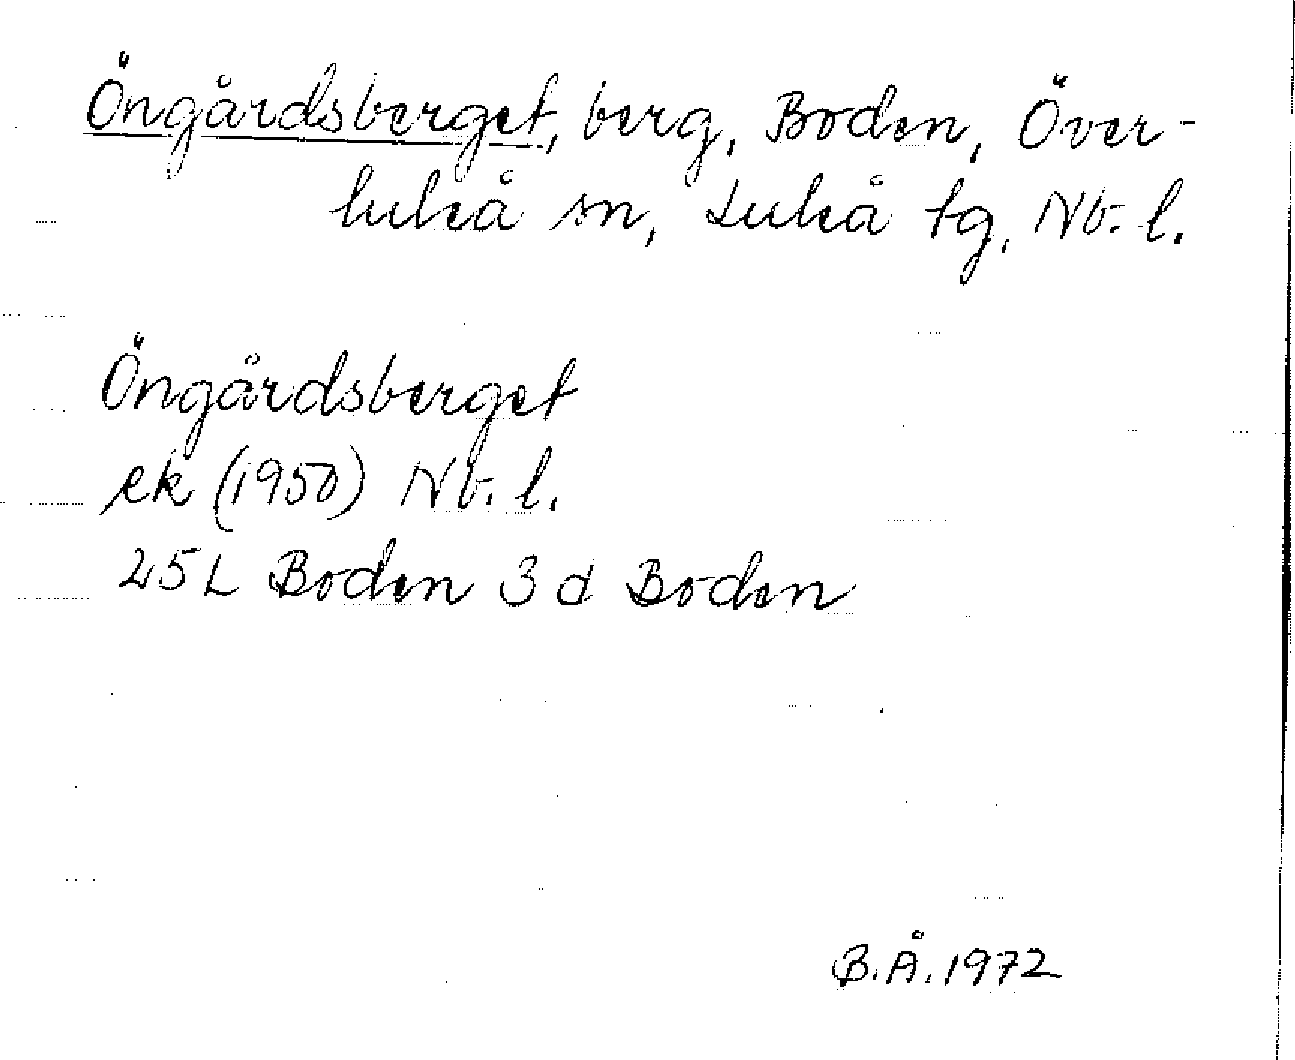 Öngårdsberget, berg, Boden, Över-
luleå sn, Luleå tg, Nb. l.
Öngårdsberget
ek (1950) Nb. l.
25L Boden 3d Boden
B.Å. 1972